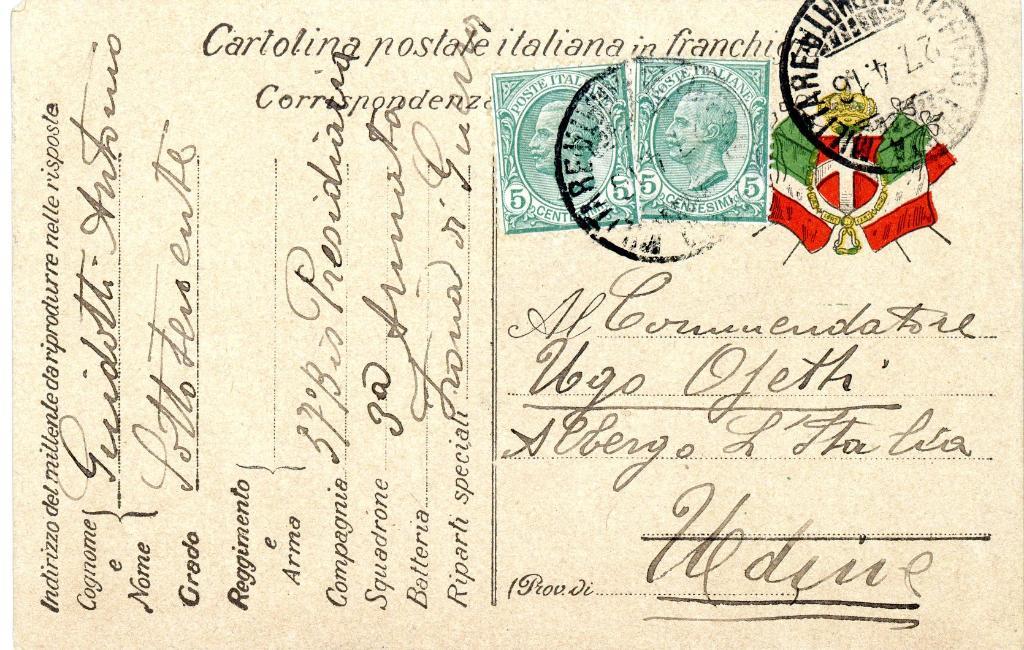 Cartolina postale italiana in franchi
Corrispondenza
POSTE ITAL
5 CENTE 5
POSTE ITALIANE
5 CENTESIMI 5
27.4.16
Indirizzo del mittente da riprodurre nelle risposte
Cognome e Nome Guidotti Antonio
Grado Sottotenente
Reggimento e Arma
Compagnia 37º Bis Presidiaria
Squadrone 3a Armata
Batteria
Riparti speciali Zona di Guerra
Al Commendatore
Ugo Ojetti
Albergo L'Italia
Udine
(Prov. di